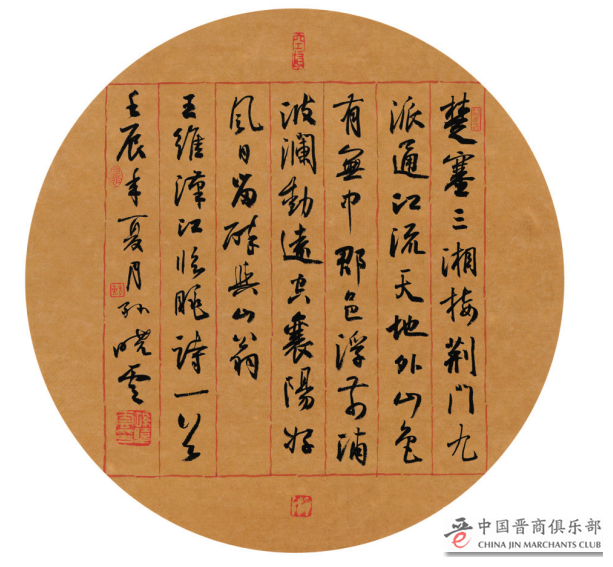 楚塞三湘接荆門九
派通江流天地外山色
有無中郡邑浮前浦
波瀾動遠空襄陽好
風日留醉與山翁
王維漢江臨眺詩一首
壬辰年夏月孫曉雲
中国晋商俱乐部
CHINA JIN MARCHANTS CLUB